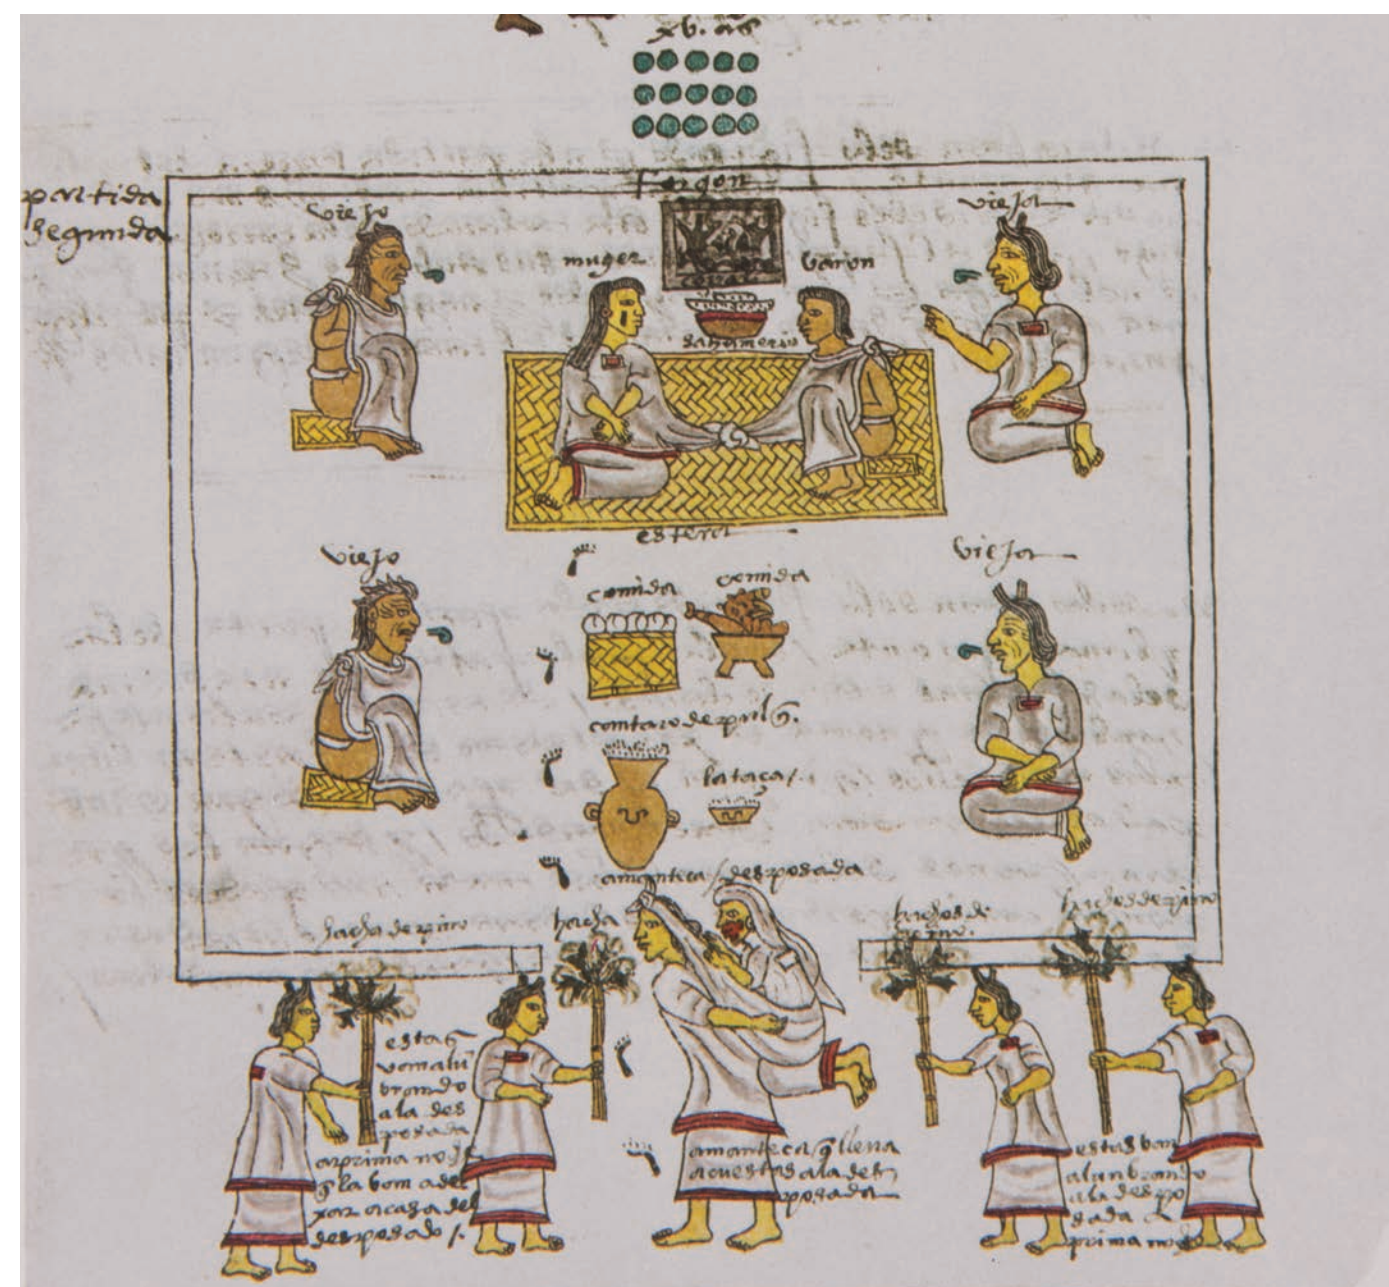 xv. aº
partida
segunda
fogon
viejo
vieja
muger
varon
copal
sahumerio
estera
viejo
vieja
comida
comida
cantaro de pulqᵉ.
la taça /.
amanteca / desposada
hacha de pino
hacha
hachos de
pino.
hachos de pino
estas
van alun
brando
a la des
posada
a prima noche
q̃ la van a de
xar a casa del
desposado /.
amanteca q̃ lleva
a cuestas a la des
posada
estas van
alunbrando
a la despo
sada a
prima noche